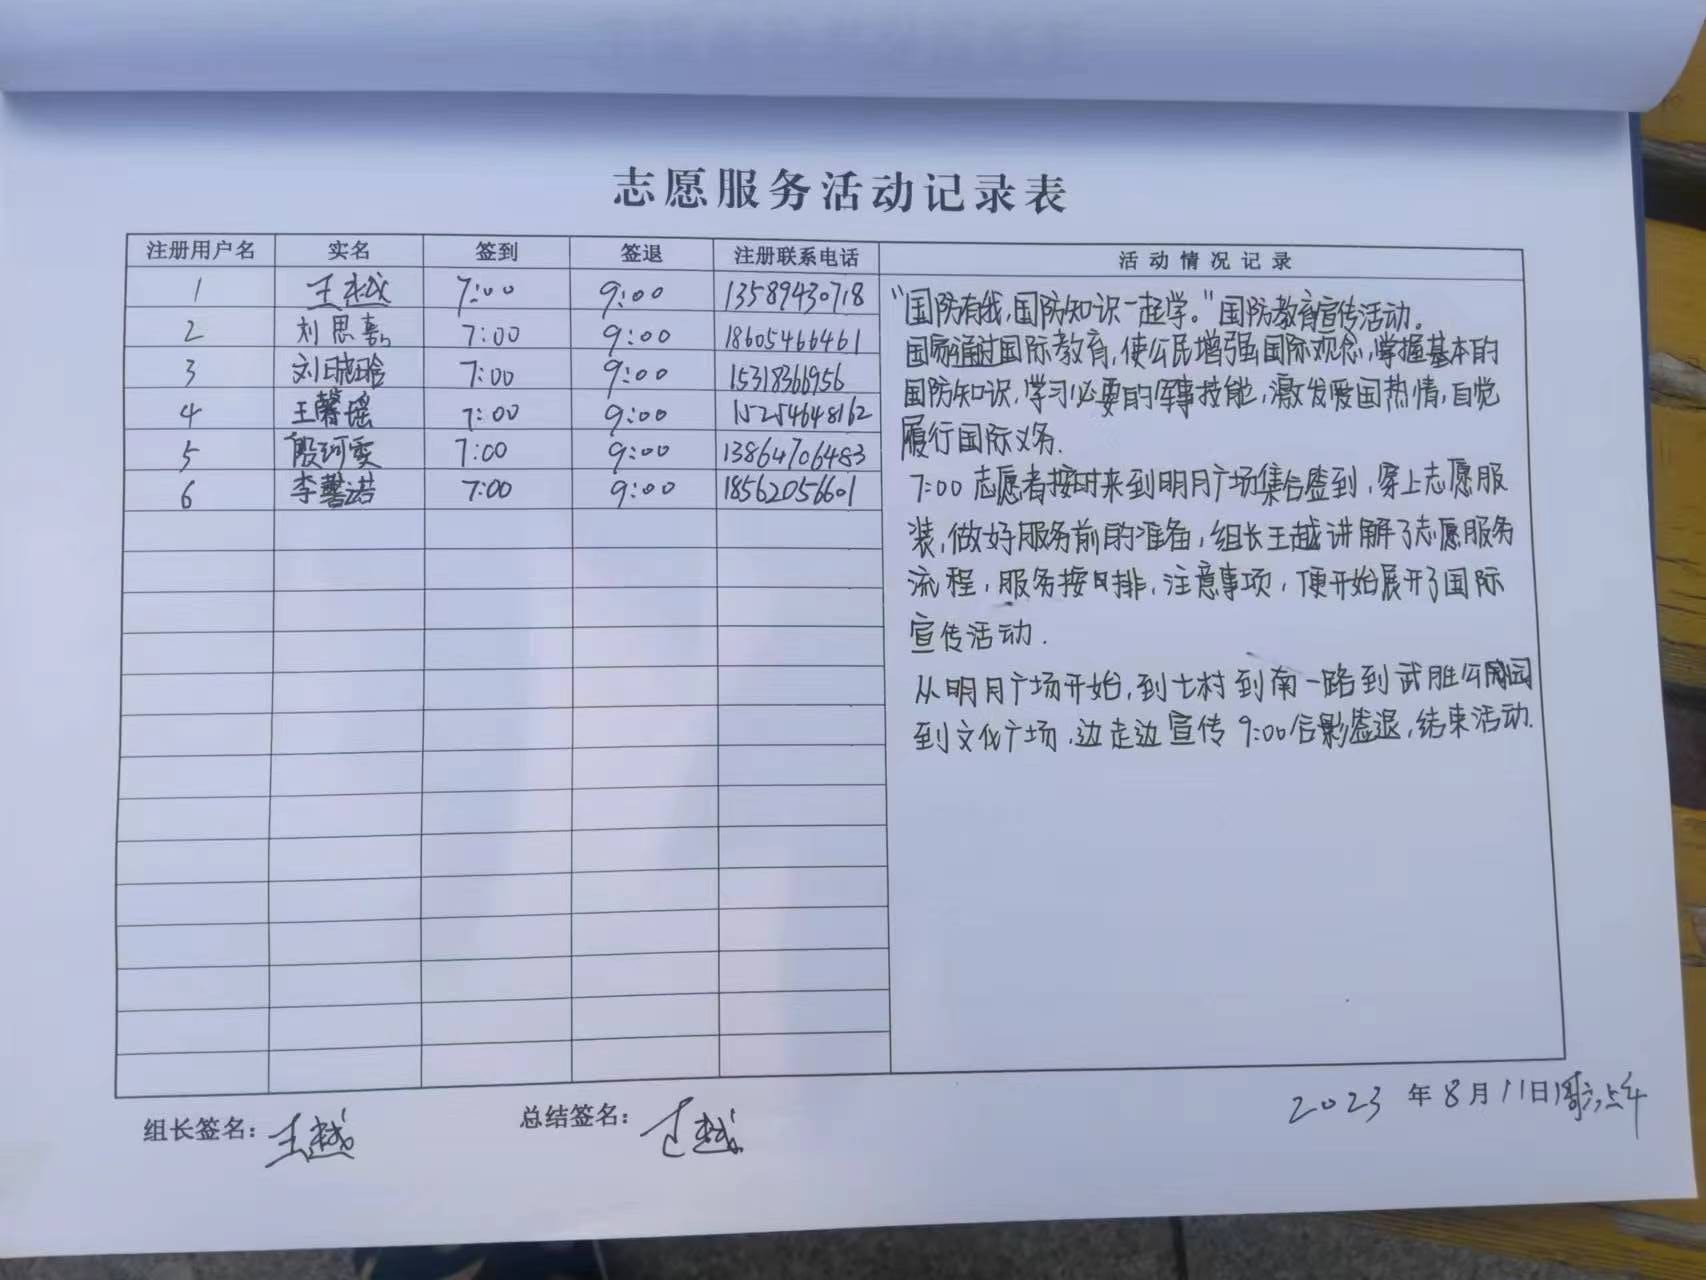 志愿服务活动记录表
注册用户名 实名 签到 签退 注册联系电话 活动情况记录
1 王越 7:00 9:00 13589430718
2 刘思嘉 7:00 9:00 18605466461
3 刘晓晗 7:00 9:00 15318366956
4 王馨瑶 7:00 9:00 15254648162
5 殷珂雯 7:00 9:00 13864706483
6 李馨诺 7:00 9:00 18562056601
“国防有我,国防知识一起学。”国防教育宣传活动。
国家通过国际教育,使公民增强国际观念,掌握基本的
国防知识,学习必要的军事技能,激发爱国热情,自觉
履行国际义务.
7:00 志愿者按时来到明月广场集合签到,穿上志愿服
装,做好服务前的准备,组长王越讲解了志愿服务
流程,服务按日排,注意事项,便开始展开了国际
宣传活动.
从明月广场开始,到七村到南一路到武胜公园
到文化广场,边走边宣传 9:00合影签退,结束活动.
组长签名: 王越 总结签名: 王越 2023年8月11日周六上午